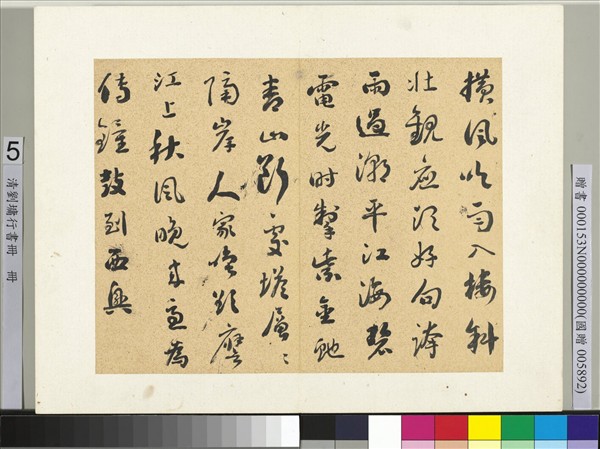 橫風吹雨入樓斜
壯觀應須好句誇
雨過潮平江海碧
電光時掣紫金蛇
青山斷處塔層〻
隔岸人家喚欲應
江上秋風晚來急為
傳鐘鼓到西興
5
清劉墉行書冊 冊
贈書 000153N000000000(國贈 005892)